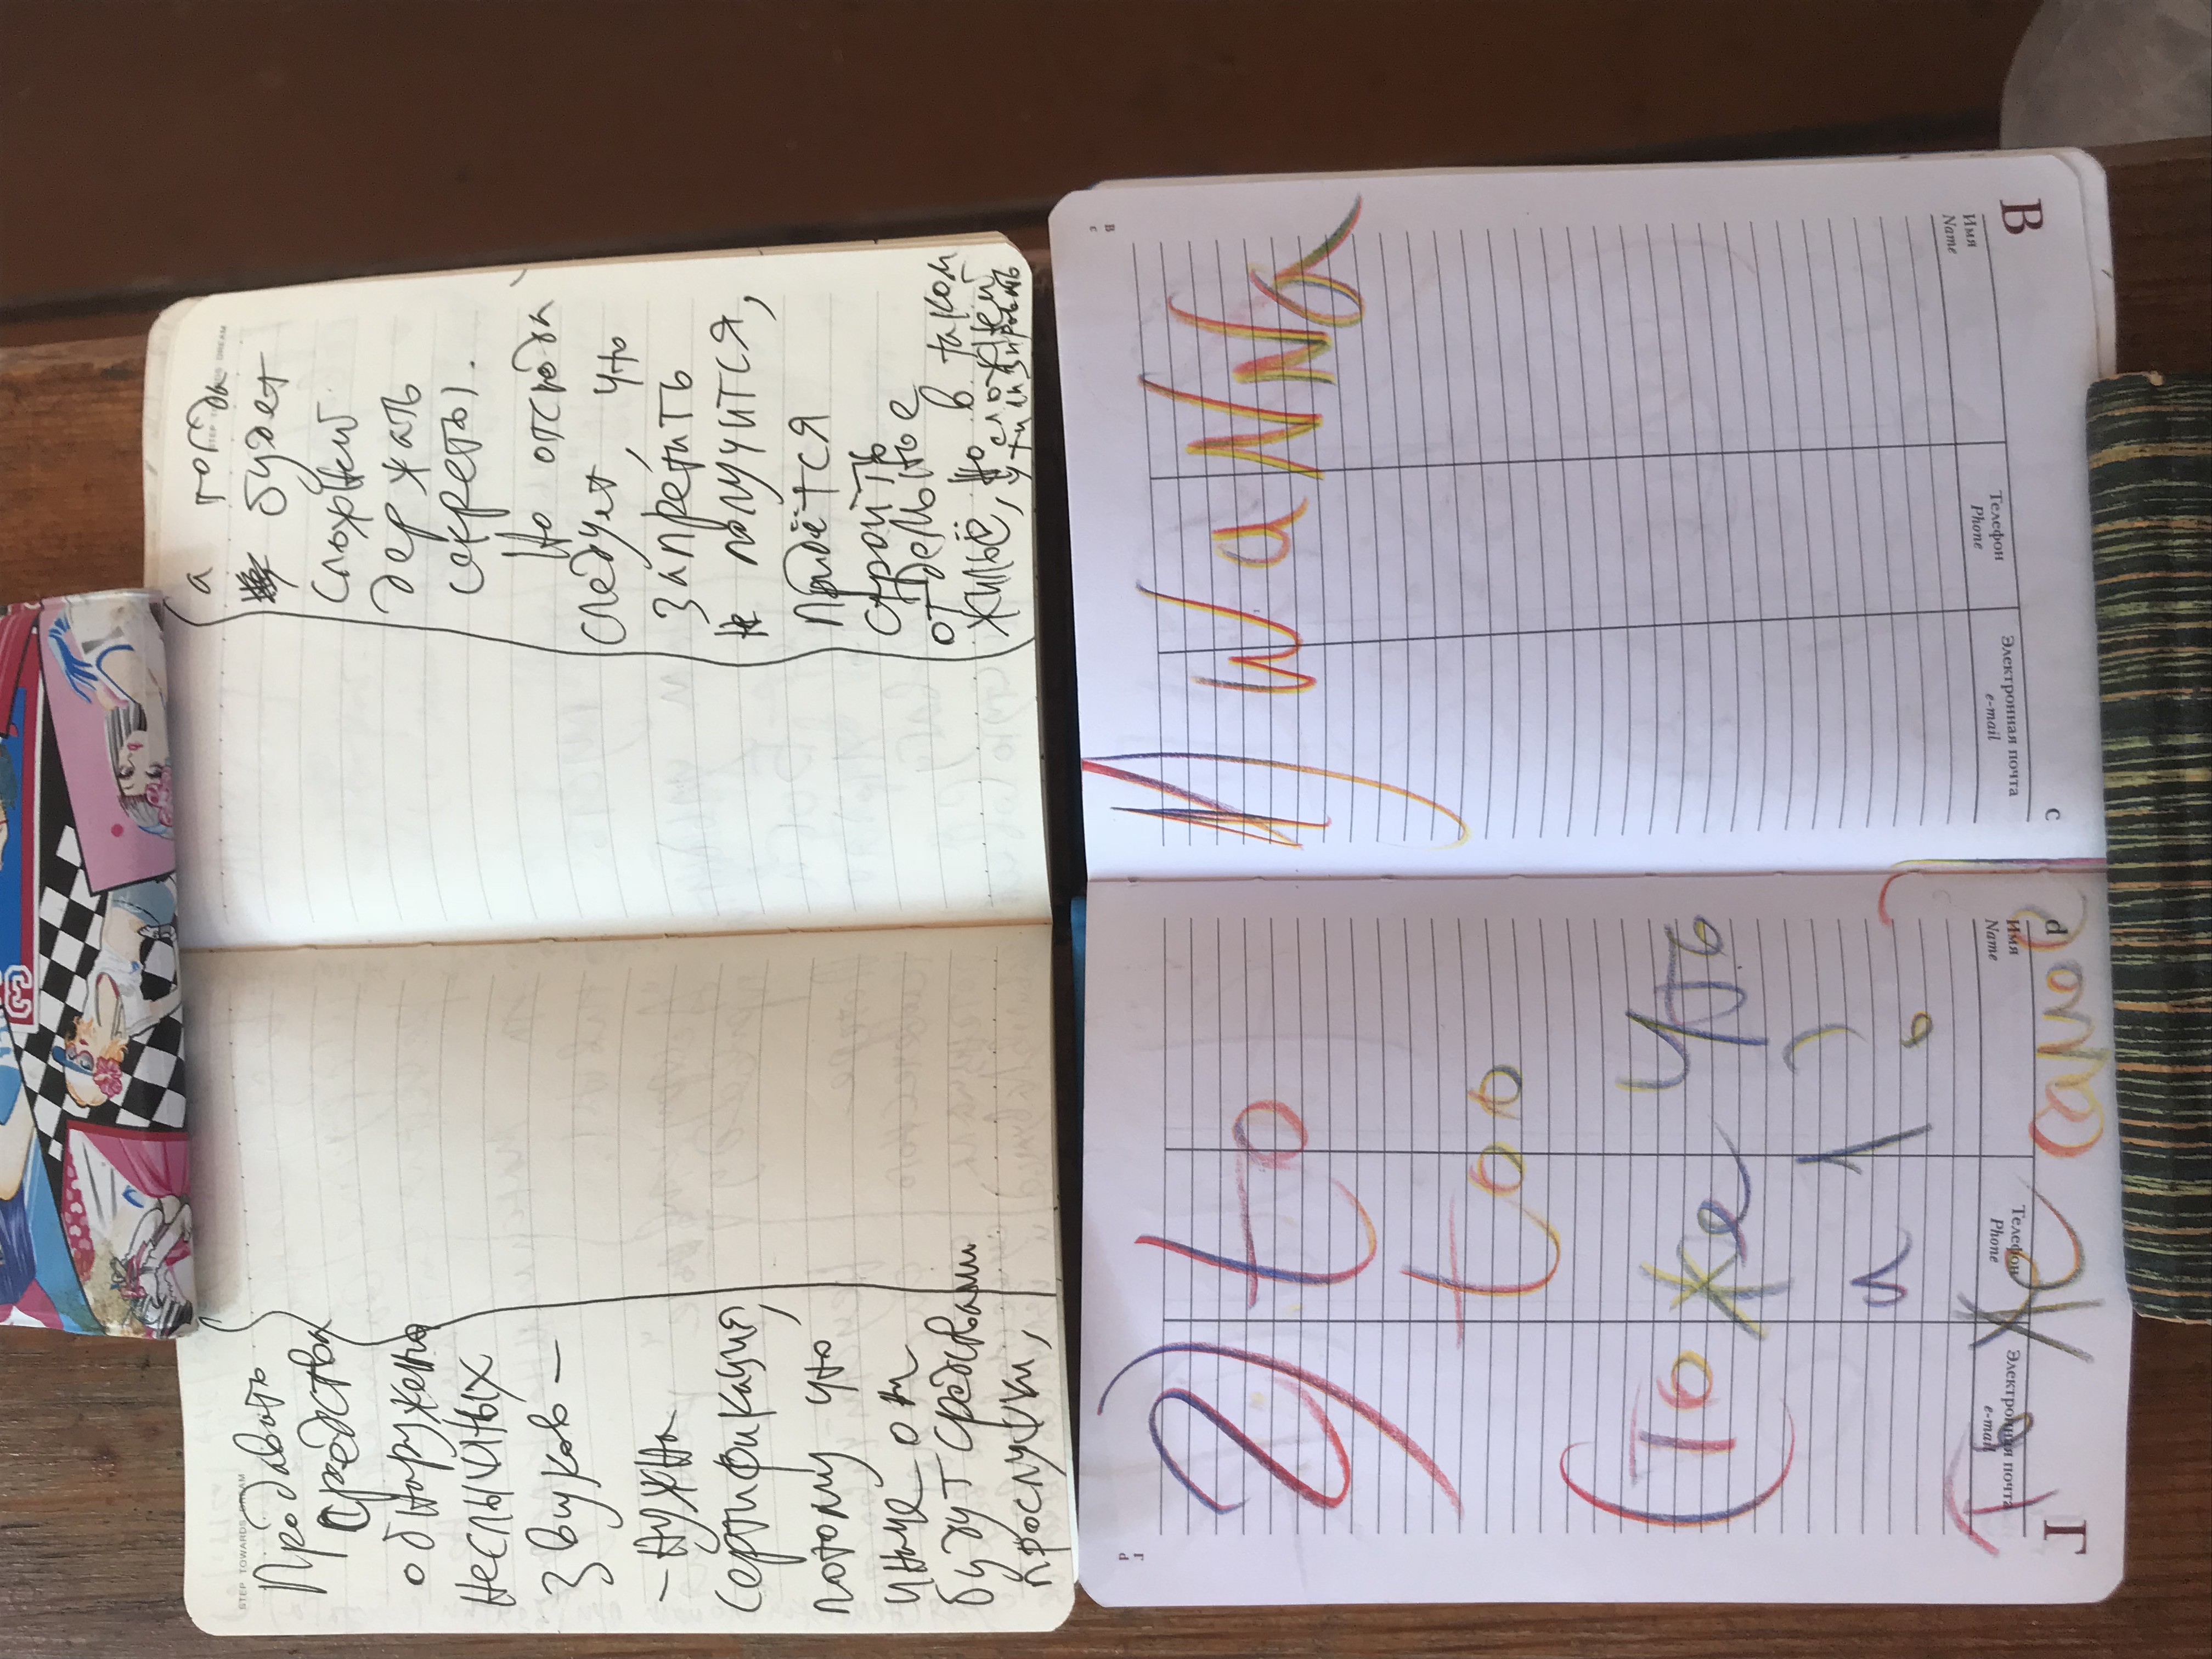 STEP TOWARDS DREAM
Продавать
средства
обнаружения
неслышных
звуков —
— нужна
сертификация,
потому что
иначе они
будут средствами
прослушки,
STEP TOWARDS DREAM
а тогда
будет
сложней
держать
секреты.
Но отсюда
следует, что
запретить
не получится,
придётся
строить
отдельное
жильё, но в таком
сложней
утилизировать
2) to
too
(То же что
и 1)
То же самое
Г d
Электронная почта
e-mail
Телефон
Phone
Имя
Name
Г
d
1) waNNa
В c
Электронная почта
e-mail
Телефон
Phone
Имя
Name
c
В